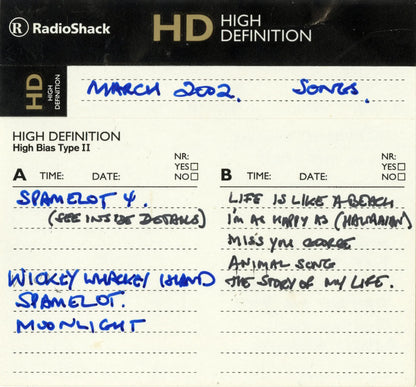 ® RadioShack HD HIGH DEFINITION
HD HIGH DEFINITION
MARCH 2002. SONGS.
HIGH DEFINITION
High Bias Type II
A TIME: DATE: NR: YES NO
SPAMELOT 4.
(SEE INSIDE DETAILS)
WICKEY WHACKEY ISLAND
SPAMELOT.
MOONLIGHT
B TIME: DATE: NR: YES NO
LIFE IS LIKE A BEACH
I'M AS HAPPY AS (HAWAIIAN)
MISS YOU GEORGE
ANIMAL SONG
THE STORY OF MY LIFE.